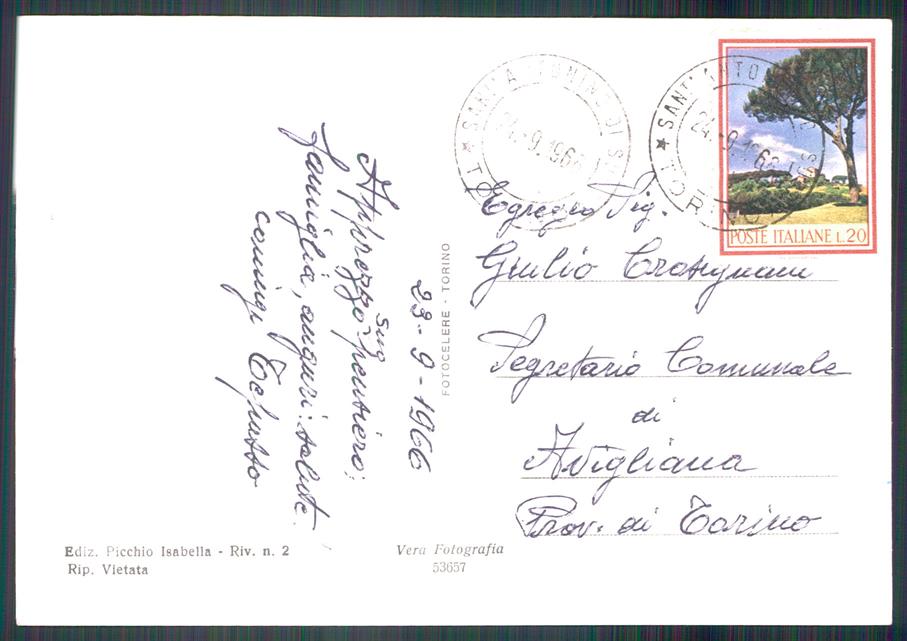 23-9-1966
Apprezzo suo pensiero:
famiglia, auguri: salute.
coniugi
Egregio Sig.
Giulio
Segretario Comunale
di
Avigliana
Prov. di Torino
SANT'ANTONINO DI S
24.-9.1966
TORINO
SANT'ANTO
24.-9.1966
TORINO
POSTE ITALIANE L.20
FOTOCELERE - TORINO
Ediz. Picchio Isabella - Riv. n. 2
Rip. Vietata
Vera Fotografia
53657